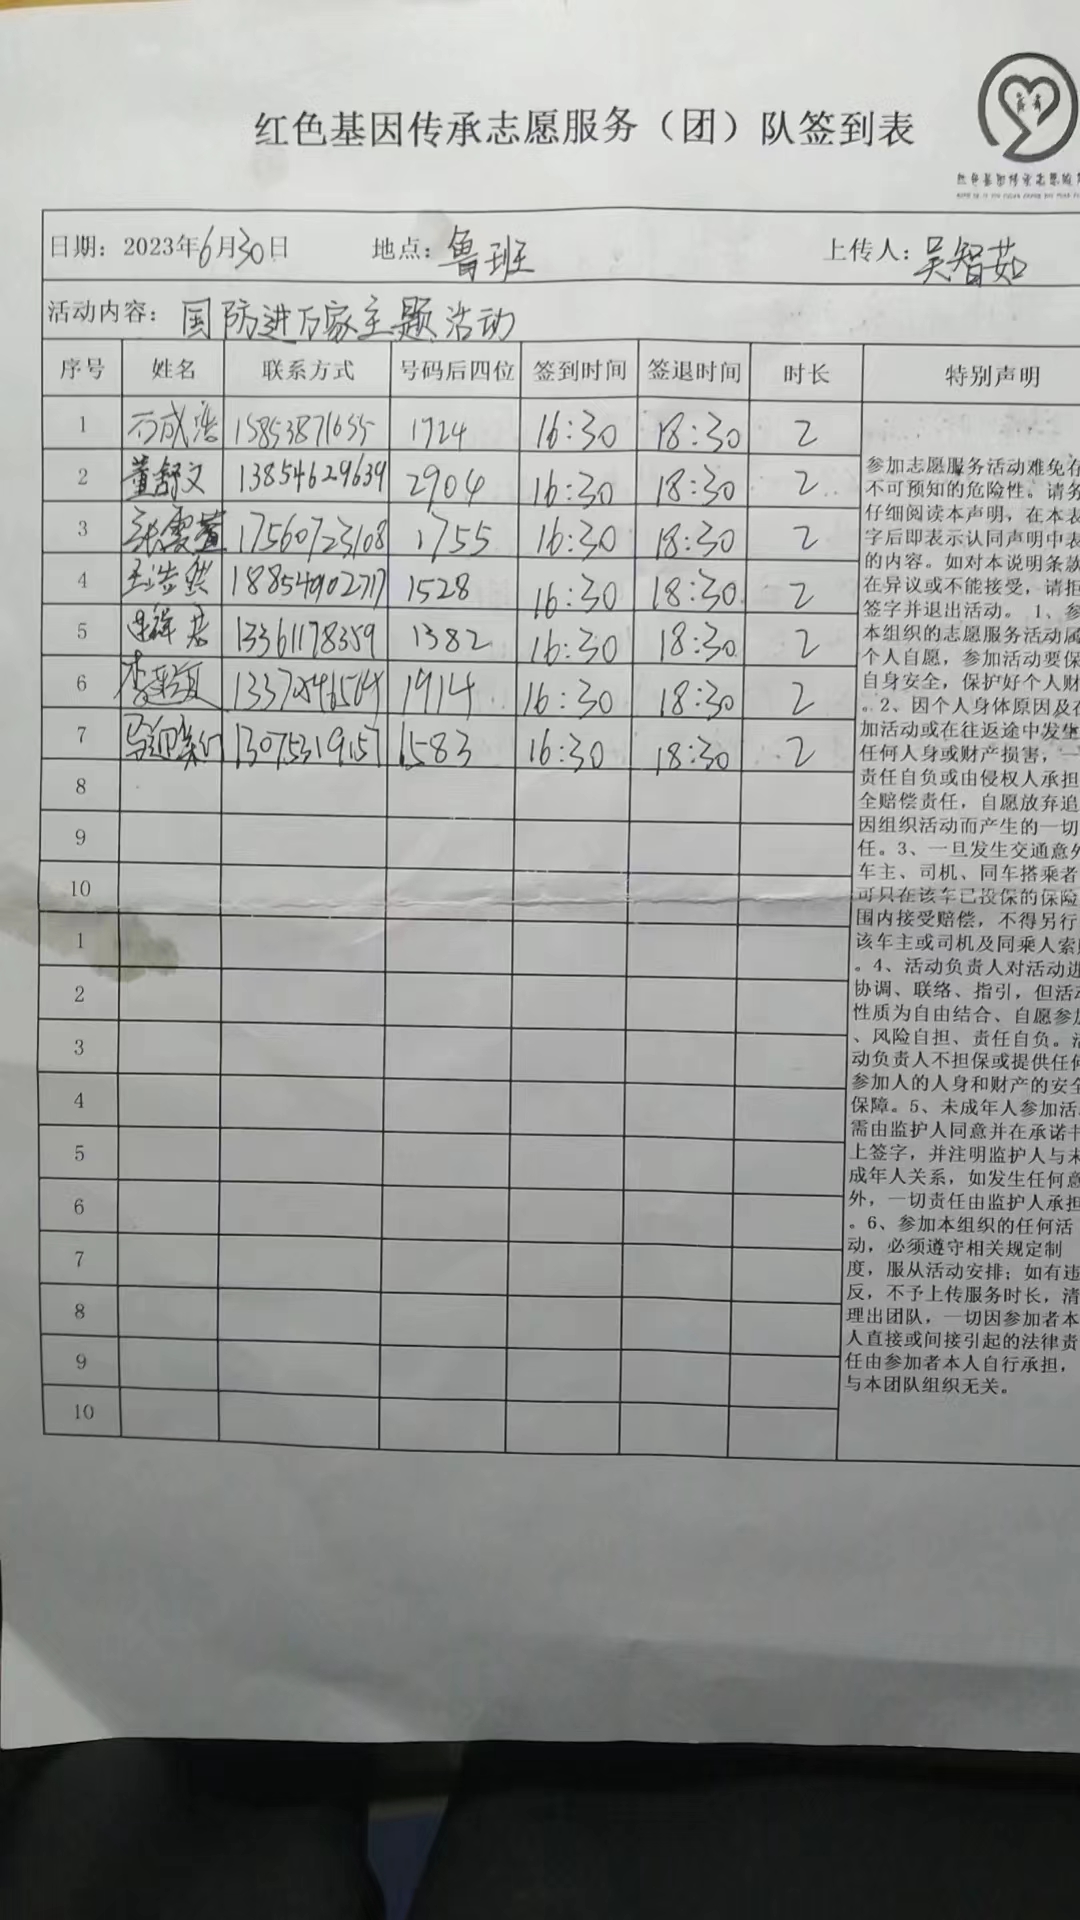 红色基因传承志愿服务（团）队签到表
日期：2023年6月30日 地点：鲁班 上传人：吴智茹
活动内容：国防进万家主题活动
序号 姓名 联系方式 号码后四位 签到时间 签退时间 时长 特别声明
1 15853871655 1724 16:30 18:30 2
2 董舒文 13854629639 2904 16:30 18:30 2
3 17560723108 1755 16:30 18:30 2
4 18854902717 1528 16:30 18:30 2
5 13361178359 1382 16:30 18:30 2
6 1914 16:30 18:30 2
7 13075319157 1583 16:30 18:30 2
8
9
10
1
2
3
4
5
6
7
8
9
10
参加志愿服务活动难免存
不可预知的危险性。请务
仔细阅读本声明，在本表
字后即表示认同声明中表
的内容。如对本说明条款
在异议或不能接受，请拒
签字并退出活动。 1、参
本组织的志愿服务活动属
个人自愿，参加活动要保
自身安全，保护好个人财
。2、因个人身体原因及在
加活动或在往返途中发生
任何人身或财产损害，一
责任自负或由侵权人承担
全赔偿责任，自愿放弃追
因组织活动而产生的一切
任。3、一旦发生交通意外
车主、司机、同车搭乘者
可只在该车已投保的保险
围内接受赔偿，不得另行
该车主或司机及同乘人索
。4、活动负责人对活动进
协调、联络、指引，但活动
性质为自由结合、自愿参加
、风险自担、责任自负。活
动负责人不担保或提供任何
参加人的人身和财产的安全
保障。5、未成年人参加活
需由监护人同意并在承诺书
上签字，并注明监护人与未
成年人关系，如发生任何意
外，一切责任由监护人承担
。6、参加本组织的任何活
动，必须遵守相关规定制
度，服从活动安排；如有违
反，不予上传服务时长，清
理出团队，一切因参加者本
人直接或间接引起的法律责
任由参加者本人自行承担，
与本团队组织无关。